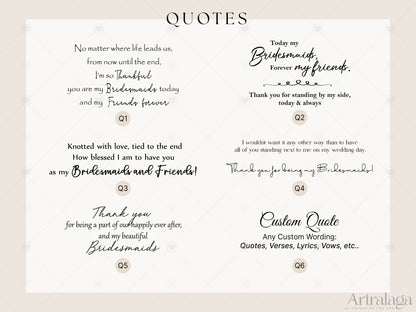 QUOTES
No matter where life leads us,
from now until the end,
I'm so Thankful
you are my Bridesmaids today
and my Friends forever
Q1
Today my
Bridesmaids,
Forever my friends,
Thank you for standing by my side,
today & always
Q2
Knotted with love, tied to the end
How blessed I am to have you
as my Bridesmaids and Friends!
Q3
I wouldn't want it any other way than to have
all of you standing next to me on my wedding day.
Thank you for being my Bridesmaids!
Q4
Thank you
for being a part of our happily ever after,
and my beautiful
Bridesmaids
Q5
Custom Quote
Any Custom Wording:
Quotes, Verses, Lyrics, Vows, etc..
Q6
Artralaga